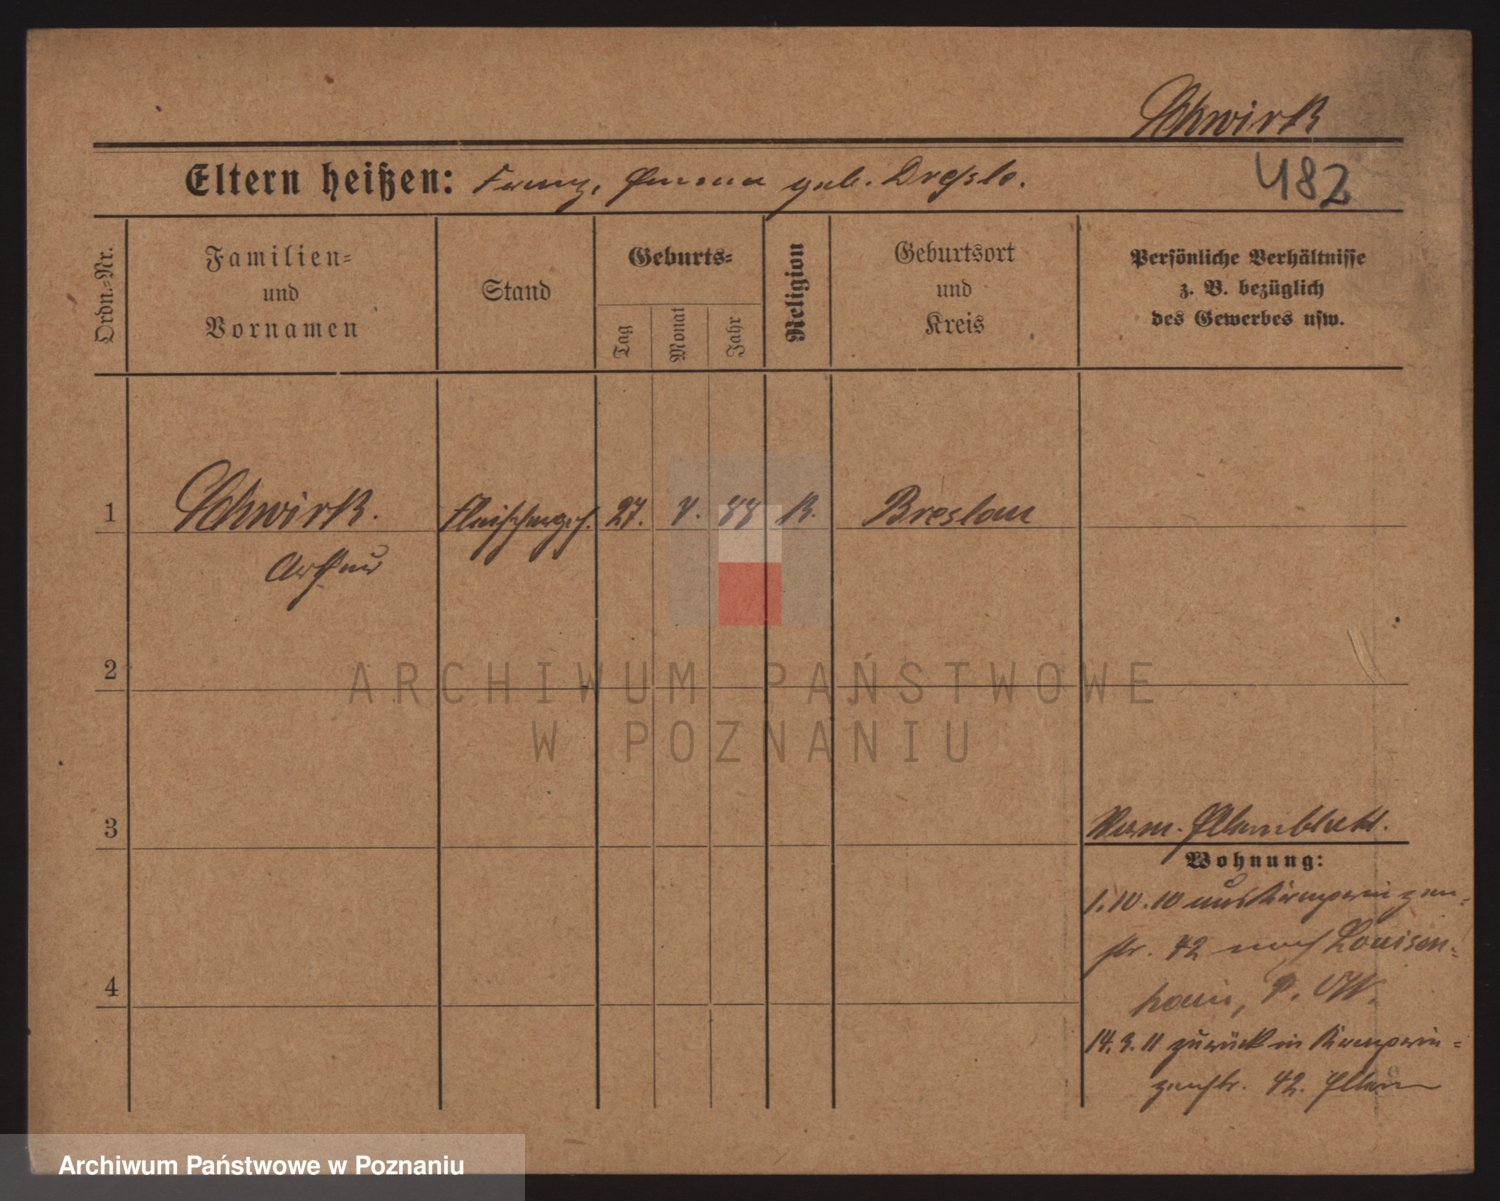 Schwirk
Eltern heißen: Franz, Emma geb. Dressle.
482
Ordn.-Nr.
Familien-
und
Vornamen
Stand
Geburts-
Tag
Monat
Jahr
Religion
Geburtsort
und
Kreis
Persönliche Verhältnisse
z. B. bezüglich
des Gewerbes usw.
1 Schwirk. Fleischerges. 27. V. 88 K. Breslau
Arthur
2
3
Verm. Elternblatt.
Wohnung:
1.10.10 aus Kronprinzen-
str. 42 nach Louisen-
hain, P. O/W.
4
14.3.11 zurück in Kronprin-
zenstr. 42. Eltern
ARCHIWUM PAŃSTWOWE
W POZNANIU
Archiwum Państwowe w Poznaniu